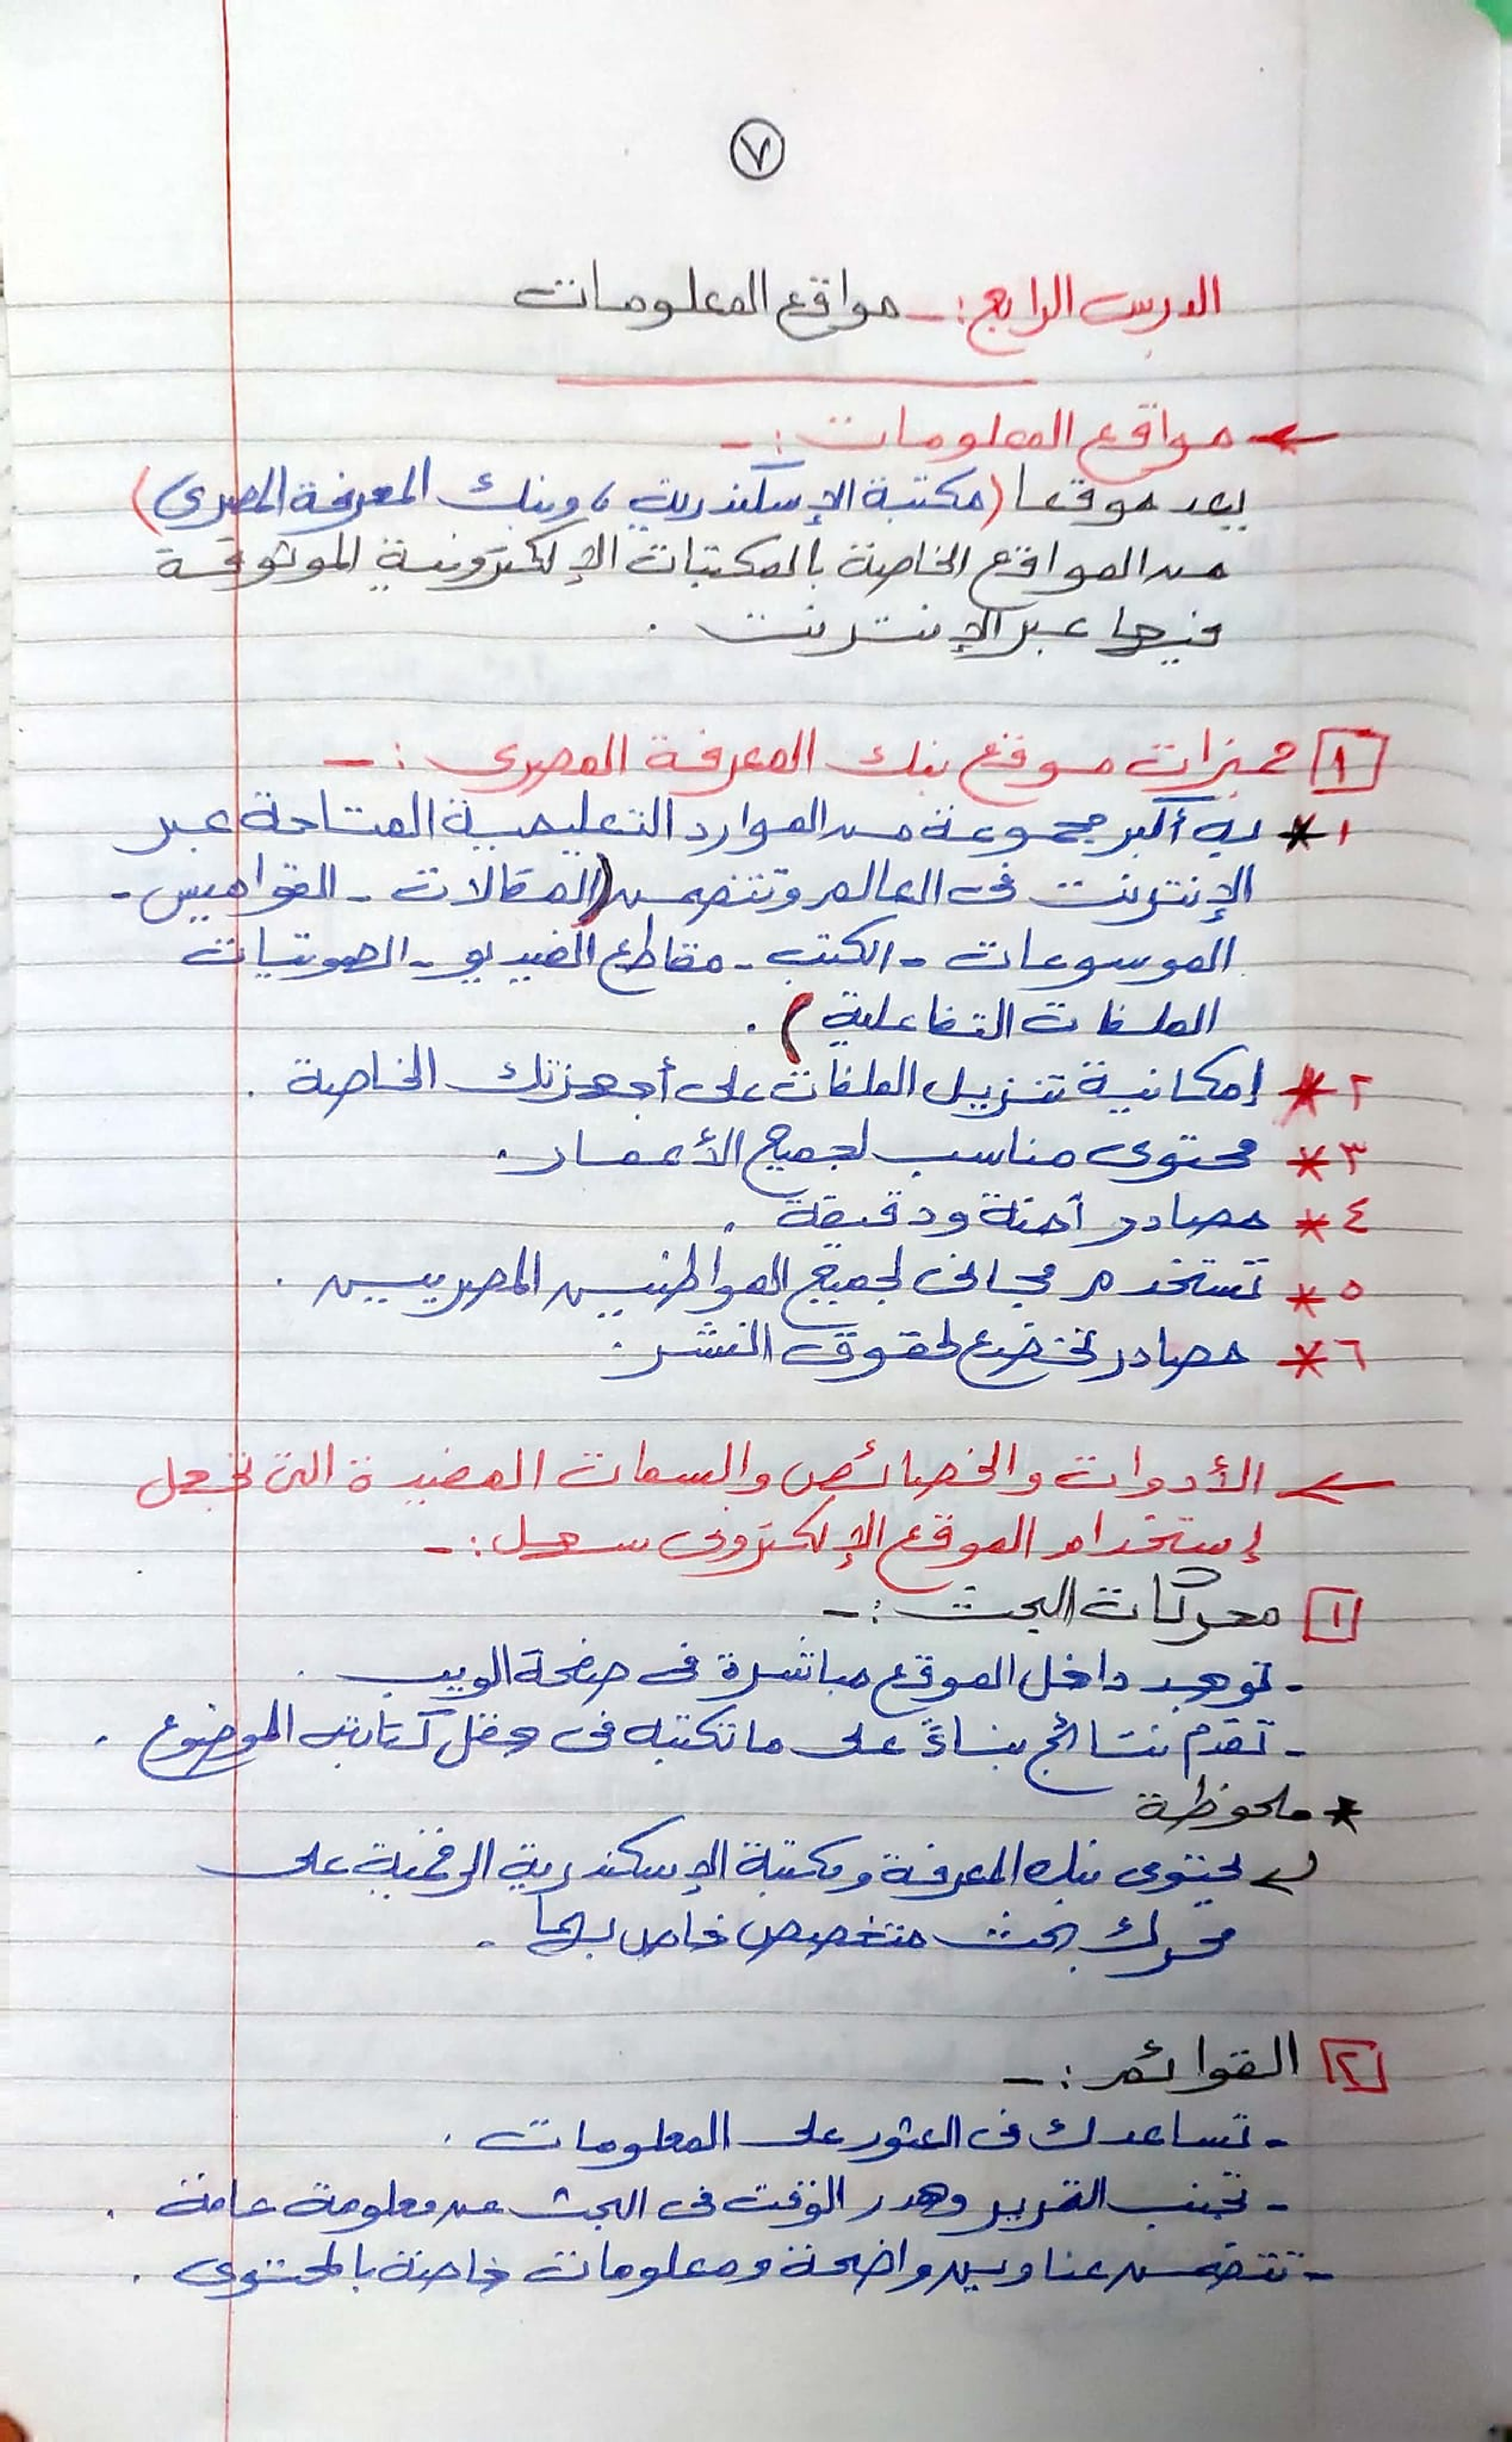 ٧
الدرس الرابع :- مواقع المعلومات
← مواقع المعلومات :-
يعد موقعا (مكتبة الإسكندرية ، وبنك المعرفة المصرى)
من المواقع الخاصة بالمكتبات الإلكترونية الموثوقة
فيها عبر الإنترنت .
١ مميزات موقع بنك المعرفة المصرى :-
١* به أكبر مجموعة من الموارد التعليمية المتاحة عبر
الإنترنت فى العالم وتتضمن (المقالات - القواميس -
الموسوعات - الكتب - مقاطع الفيديو - الصوتيات
الملفات التفاعلية ) .
٢* إمكانية تنزيل الملفات على أجهزتك الخاصة .
٣* محتوى مناسب لجميع الأعمار .
٤* مصادر آمنة ودقيقة .
٥* تستخدم مجانى لجميع المواطنيين المصريين .
٦* مصادر تخضع لحقوق النشر .
← الأدوات والخصائص والسمات المفيدة التى تجعل
إستخدام الموقع الإلكترونى سهل :-
١ محركات البحث :-
- توجد داخل الموقع مباشرة فى صفحة الويب .
- تقدم نتائج بناءً على ما تكتبه فى حقل كتابة الموضوع .
* ملحوظة
يحتوى بنك المعرفة ومكتبة الإسكندرية الرقمية على
محرك بحث متخصص خاص بهما .
٢ القوائم :-
- تساعدك فى العثور على المعلومات .
- تجنب التمرير وهدر الوقت فى البحث عن معلومة عامة .
- تتضمن عناوين واضحة ومعلومات خاصة بالمحتوى .